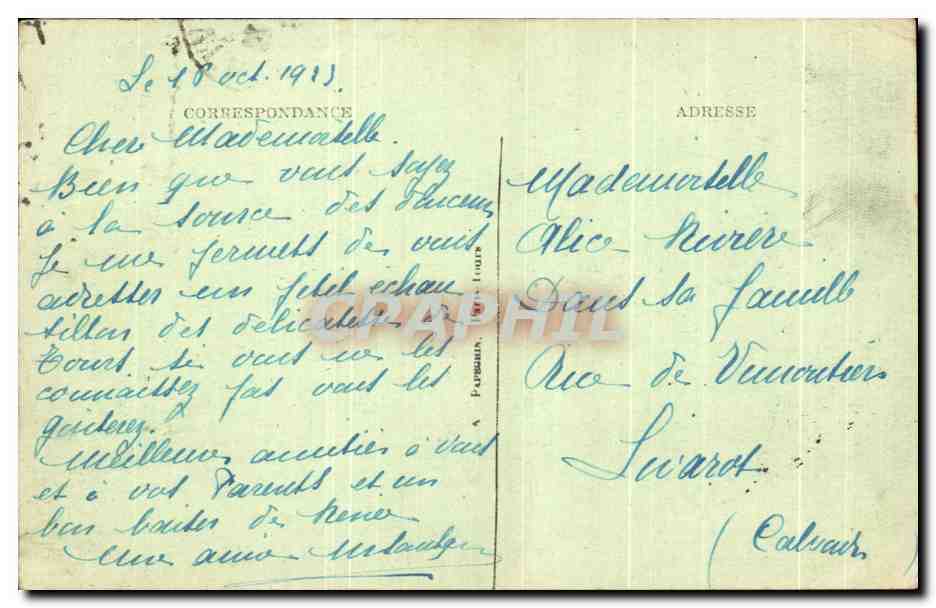 Le 18 oct. 1923
CORRESPONDANCE
Chere Mademoiselle
Bien que vous soyez
à la source des douceurs
je me permets de vous
adresser un petit échan
tillon des délicatesses de
Tours si vous ne les
connaissez pas vous les
gouterez.
Meilleures amitiés à vous
et à vos Parents et un
bon baiser de Renée
Une amie
PAPEGHIN, PARIS-TOURS
ADRESSE
Mademoiselle
Alice Riviere
Dans sa famille
Rue de Vimoutiers
Livarot
(Calvados
CPAPHIL